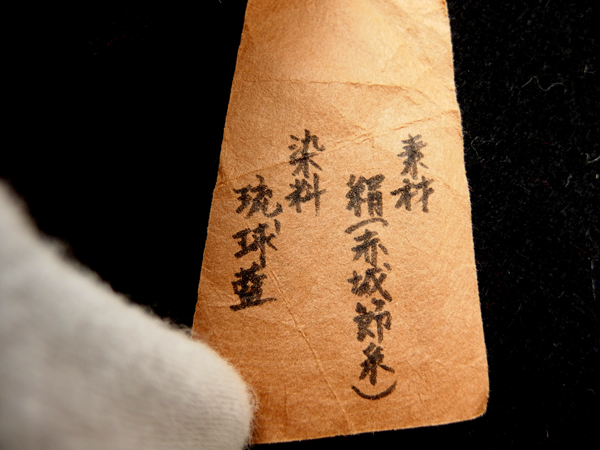 素材
絹(赤城節糸)
染料
琉球藍